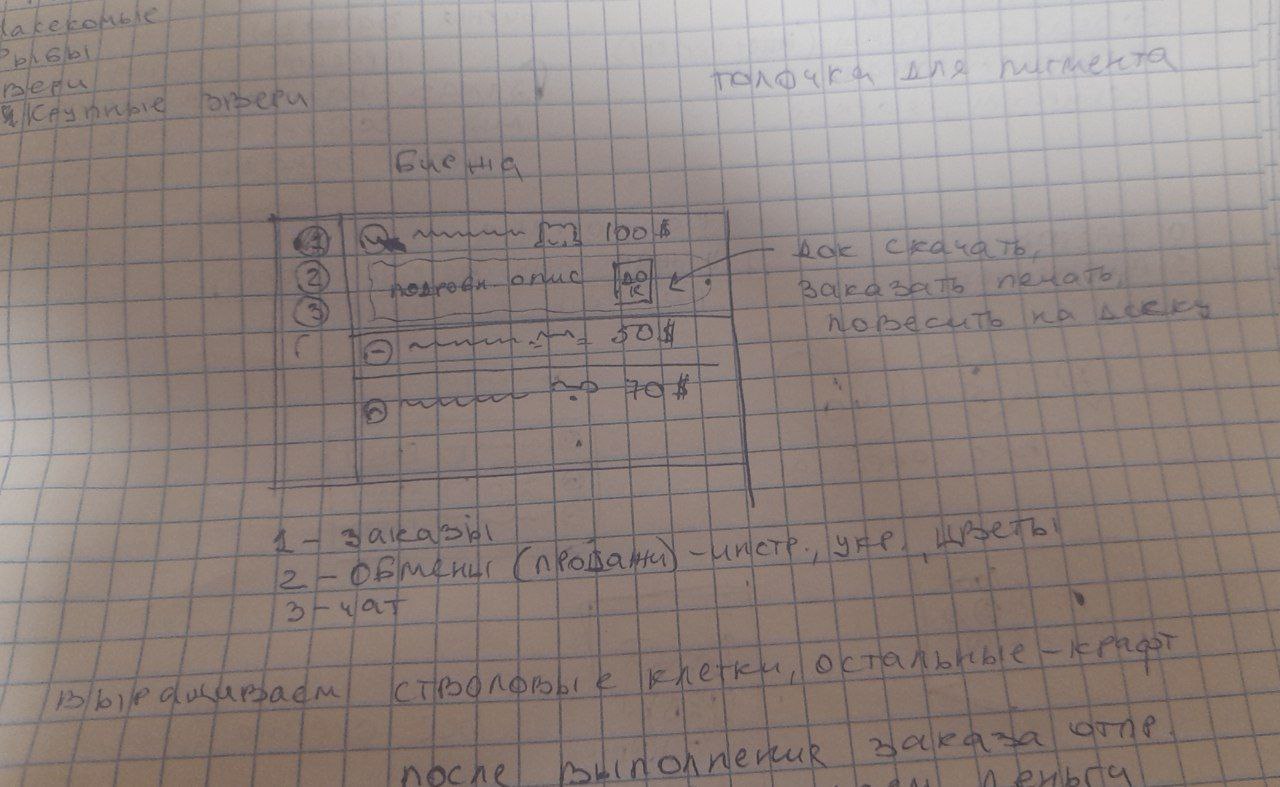 Насекомые
Рыбы
Звери
Крупные звери
полочка для пигмента
Биржа
1 100$
2 подробн. опис док
док скачать,
заказать печать,
повесить на доску
3
50$
70$
1 - заказы
2 - Обмены (продажи) - инстр., укр., цветы
3 - чат
выращиваем стволовые клетки, остальные - крафт
после выполнения заказа отпр.
деньги